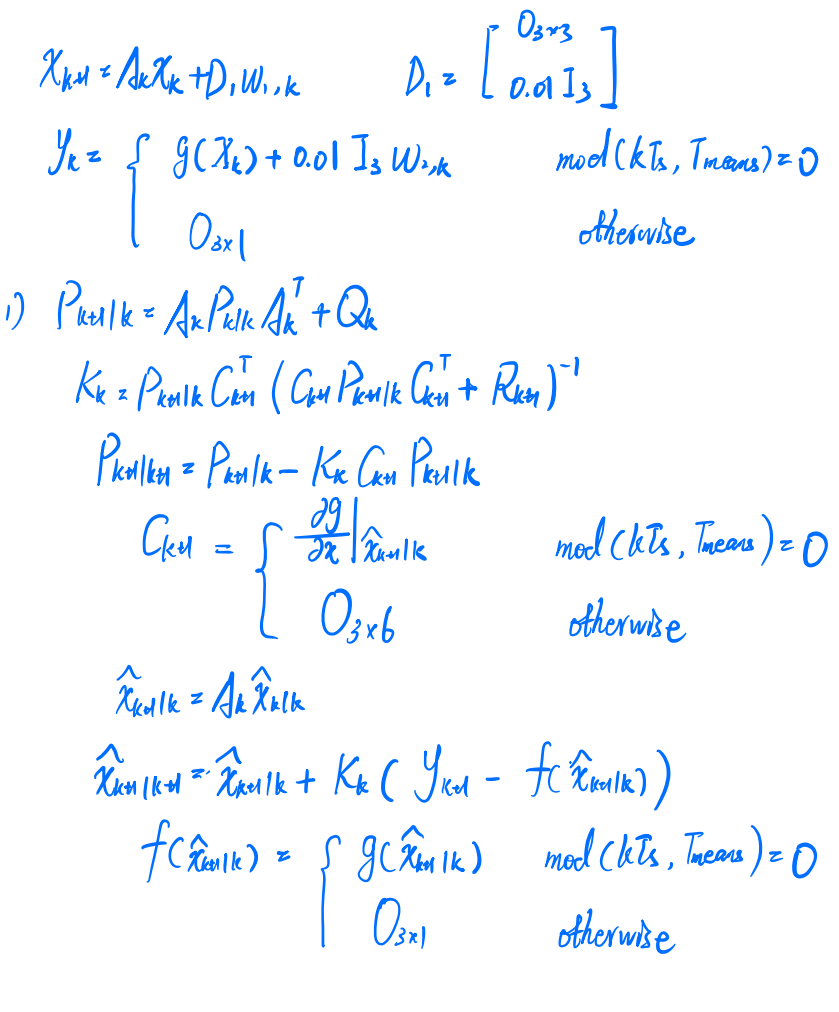 x_{k+1} = A_k x_k + D_1 w_{1,k}    D_1 = [ 0_{3×3} ; 0.01 I_3 ]
y_k = { g(x_k) + 0.01 I_3 w_{2,k}    mod(kTs, Tmeans) = 0
0_{3×1}    otherwise
1) P_{k+1|k} = A_k P_{k|k} A_k^T + Q_k
K_k = P_{k+1|k} C_{k+1}^T ( C_{k+1} P_{k+1|k} C_{k+1}^T + R_{k+1} )^{-1}
P_{k+1|k+1} = P_{k+1|k} - K_k C_{k+1} P_{k+1|k}
C_{k+1} = { ∂g/∂x |_{x̂_{k+1|k}}    mod(kTs, Tmeans) = 0
0_{3×6}    otherwise
x̂_{k+1|k} = A_k x̂_{k|k}
x̂_{k+1|k+1} = x̂_{k+1|k} + K_k ( y_{k+1} - f(x̂_{k+1|k}) )
f(x̂_{k+1|k}) = { g(x̂_{k+1|k})    mod(kTs, Tmeans) = 0
0_{3×1}    otherwise